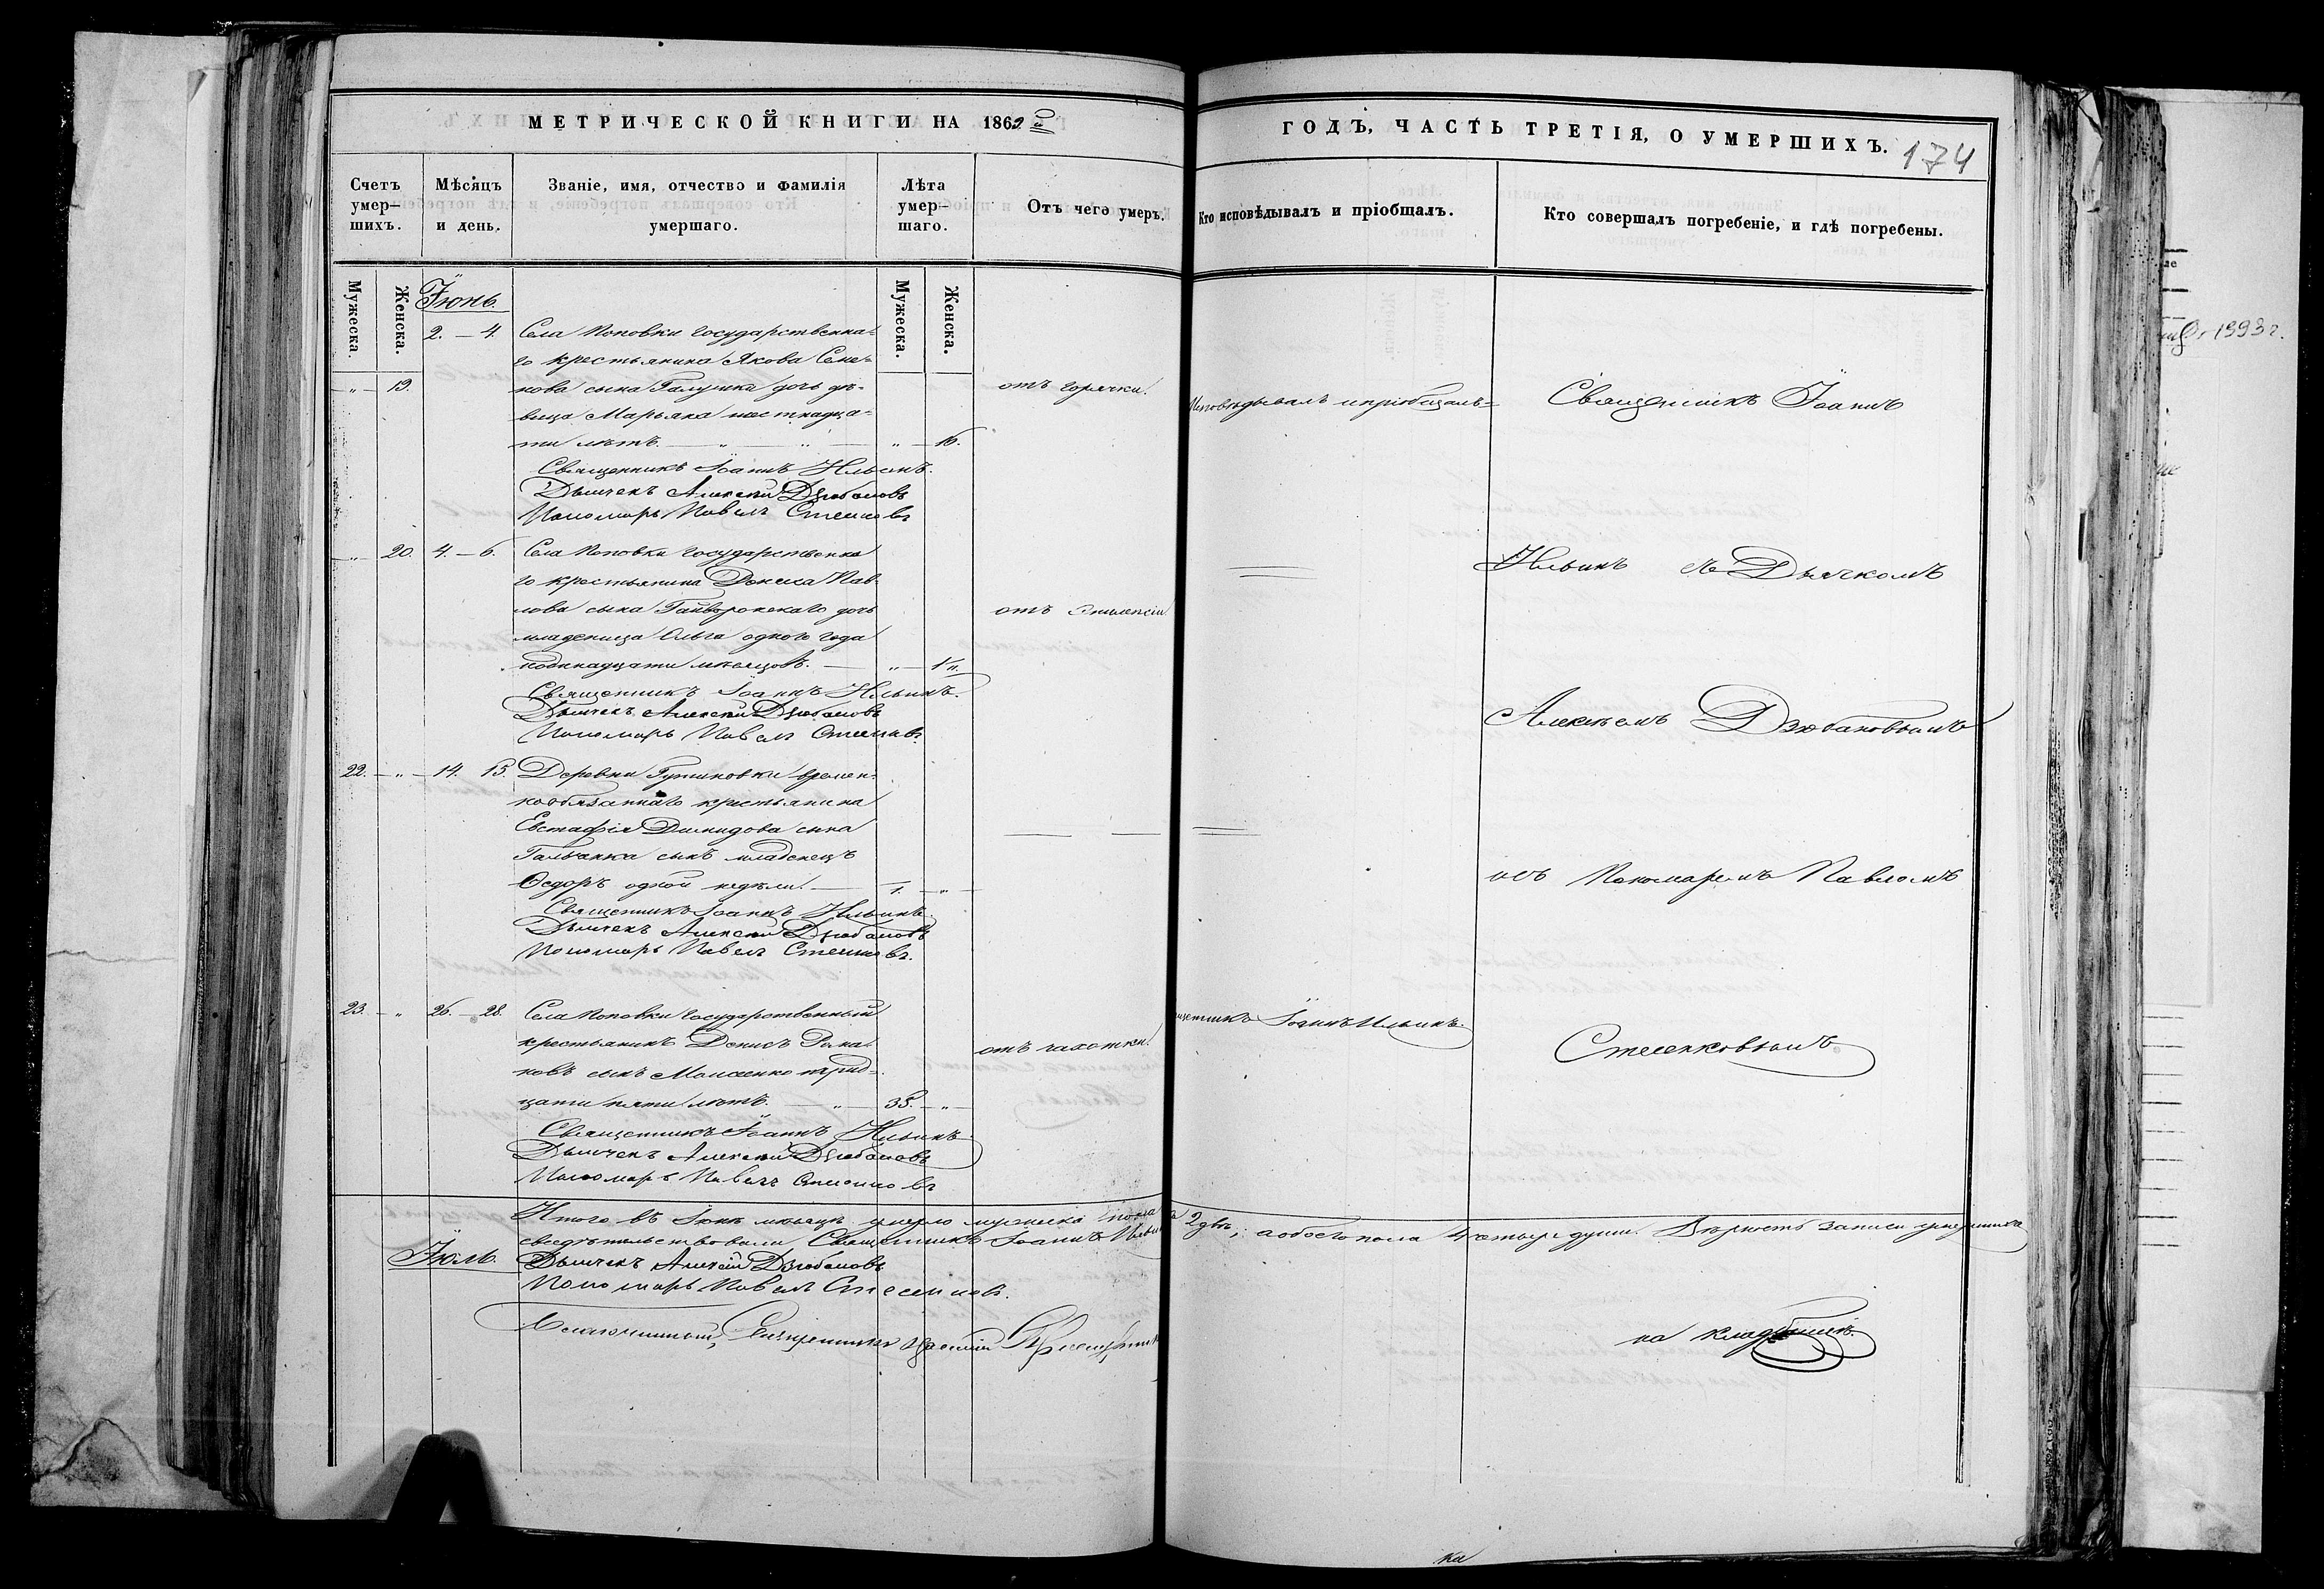 МЕТРИЧЕСКОЙ КНИГИ НА 1862 й
ГОДЪ, ЧАСТЬ ТРЕТІЯ, О УМЕРШИХЪ.
174
Счетъ умер–шихъ.
Мѣсяцъ и день.
Званіе, имя, отчество и фамилія умершаго.
Лѣта умер–шаго.
Отъ чего умеръ.
Кто исповѣдывалъ и пріобщалъ.
Кто совершалъ погребеніе, и гдѣ погребены.
Мужеска.
Женска.
Іюнь.
Мужеска.
Женска.
2. — 4. Села Поповки государственна=
го крестьянина Якова Семе=
„ 19. нова сына Галушка дочь дѣ= отъ горячки.
вица Марьяна шестнадца=
ти лѣтъ. „ 16.
Исповѣдывалъ и пріобщалъ=
Священникъ Іоаннъ
Священникъ Іоаннъ Ильинъ.
Дьячекъ Алексѣй Дзюбановъ
Пономарь Павелъ Стесенковъ
„ 20. 4. — 6. Села Поповки государственна
го крестьянина Дениса Пав
лова сына Гайворонскаго дочь отъ эпилепсіи
младеница Ольга одного года
и одиннадцати мѣсяцовъ. „ 1/11.
Ильинъ съ Дьячкомъ
Священникъ Іоаннъ Ильинъ.
Дьячекъ Алексѣй Дзюбановъ
Пономарь Павелъ Стесенковъ
Алексѣемъ Дзюбановымъ
22. „ 14. 15. Деревни времен=
нообязаннаго крестьянина
Евстафія Демидова сына
сынъ младенецъ
Ѳедоръ одной недѣли. 1. „
и съ Пономаремъ Павломъ
Священникъ Іоаннъ Ильинъ.
Дьячекъ Алексѣй Дзюбановъ
Пономарь Павелъ Стесенковъ.
23. „ 26. — 28. Села Поповки государственный
крестьянинъ Денисъ Рома= отъ чахотки.
новъ сынъ Моисеенко трид=
цати пяти лѣтъ. „ 35. „
щенникъ Іоаннъ Ильинъ.
Стесенковымъ
Священникъ Іоаннъ Ильинъ
Дьячекъ Алексѣй Дзюбановъ
Пономарь Павелъ Стесенковъ
Итого въ Іюнѣ мѣсяцѣ умерло мужеска пола 2 двѣ; а обоего пола 4 четыре души. Вѣрность записи умершихъ
свидѣтельствовали Священникъ Іоаннъ Ильинъ
Іюль. Дьячекъ Алексѣй Дзюбановъ
Пономарь Павелъ Стесенковъ.
Благочинный, Священникъ
на кладбищѣ.